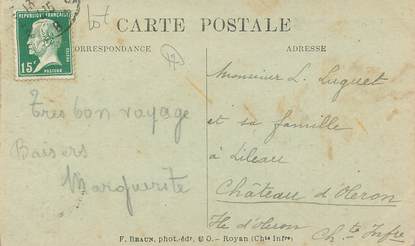 lot
CARTE POSTALE
CORRESPONDANCE
ADRESSE
RÉPUBLIQUE FRANÇAISE
15c
POSTES
Très bon voyage
Baisers
Marguerite
Monsieur L. Luguet
et sa famille
à Lileau
Château d'Oleron
Ile d'Oleron Chte Infre
F. BRAUN, phot.-édr, - Royan (Chte Infre)